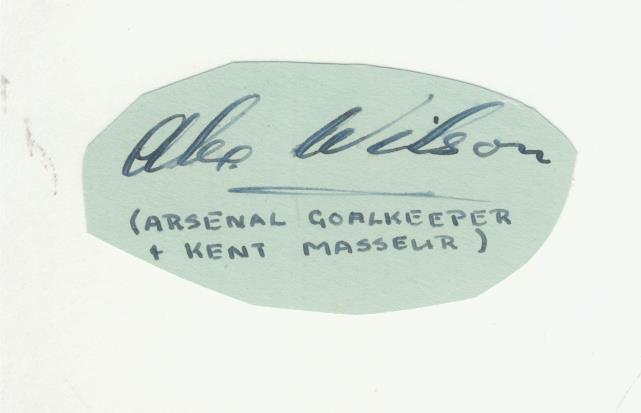 Alex Wilson
(ARSENAL GOALKEEPER
+ KENT MASSEUR)